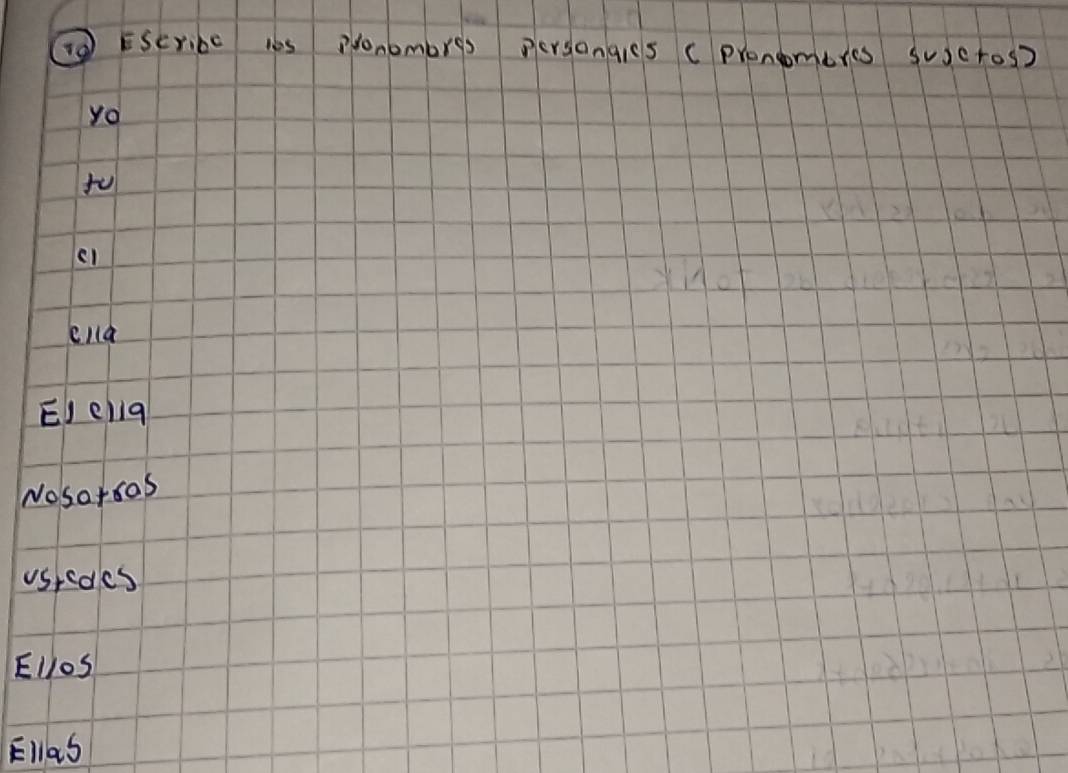 10 Escribe los pronombres personales ( pronombres sujetos)
yo
tu
el
ella
El ella
Nosotras
ustedes
Ellos
Ellas